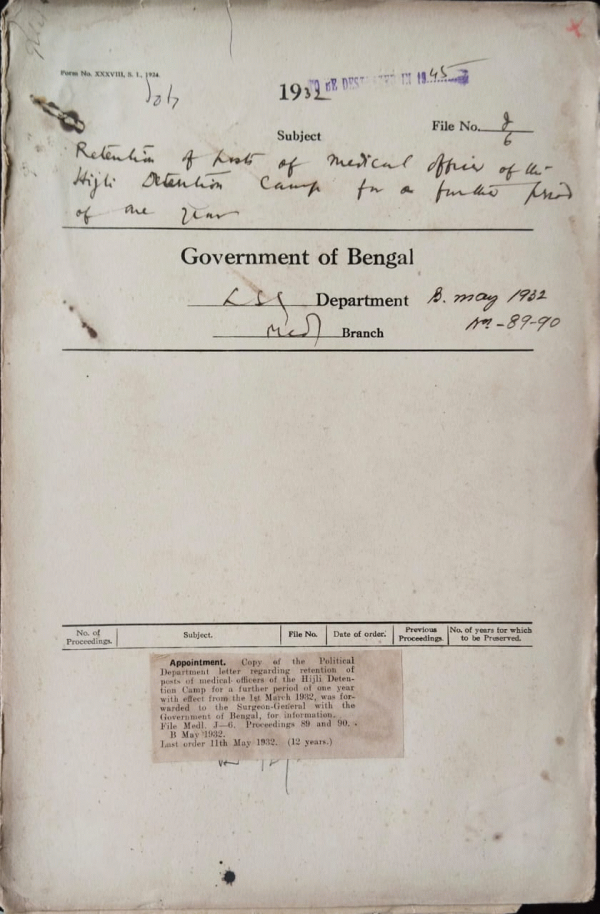 Form No. XXXVIII, S. I., 1924.
1932
TO BE DESTROYED IN 1945
File No. J/6
Subject
Retention of posts of medical officer of the
Hijli Detention Camp for a further period
of one year
Government of Bengal
LSG Department B. May 1932
Medl Branch Nos-89-90
No. of Proceedings. Subject. File No. Date of order. Previous Proceedings. No. of years for which to be Preserved.
Appointment. Copy of the Political
Department letter regarding retention of
posts of medical officers of the Hijli Deten-
tion Camp for a further period of one year
with effect from the 1st March 1932, was for-
warded to the Surgeon-General with the
Government of Bengal, for information.
File Medl. J—6. Proceedings 89 and 90.
B May 1932.
Last order 11th May 1932. (12 years.)